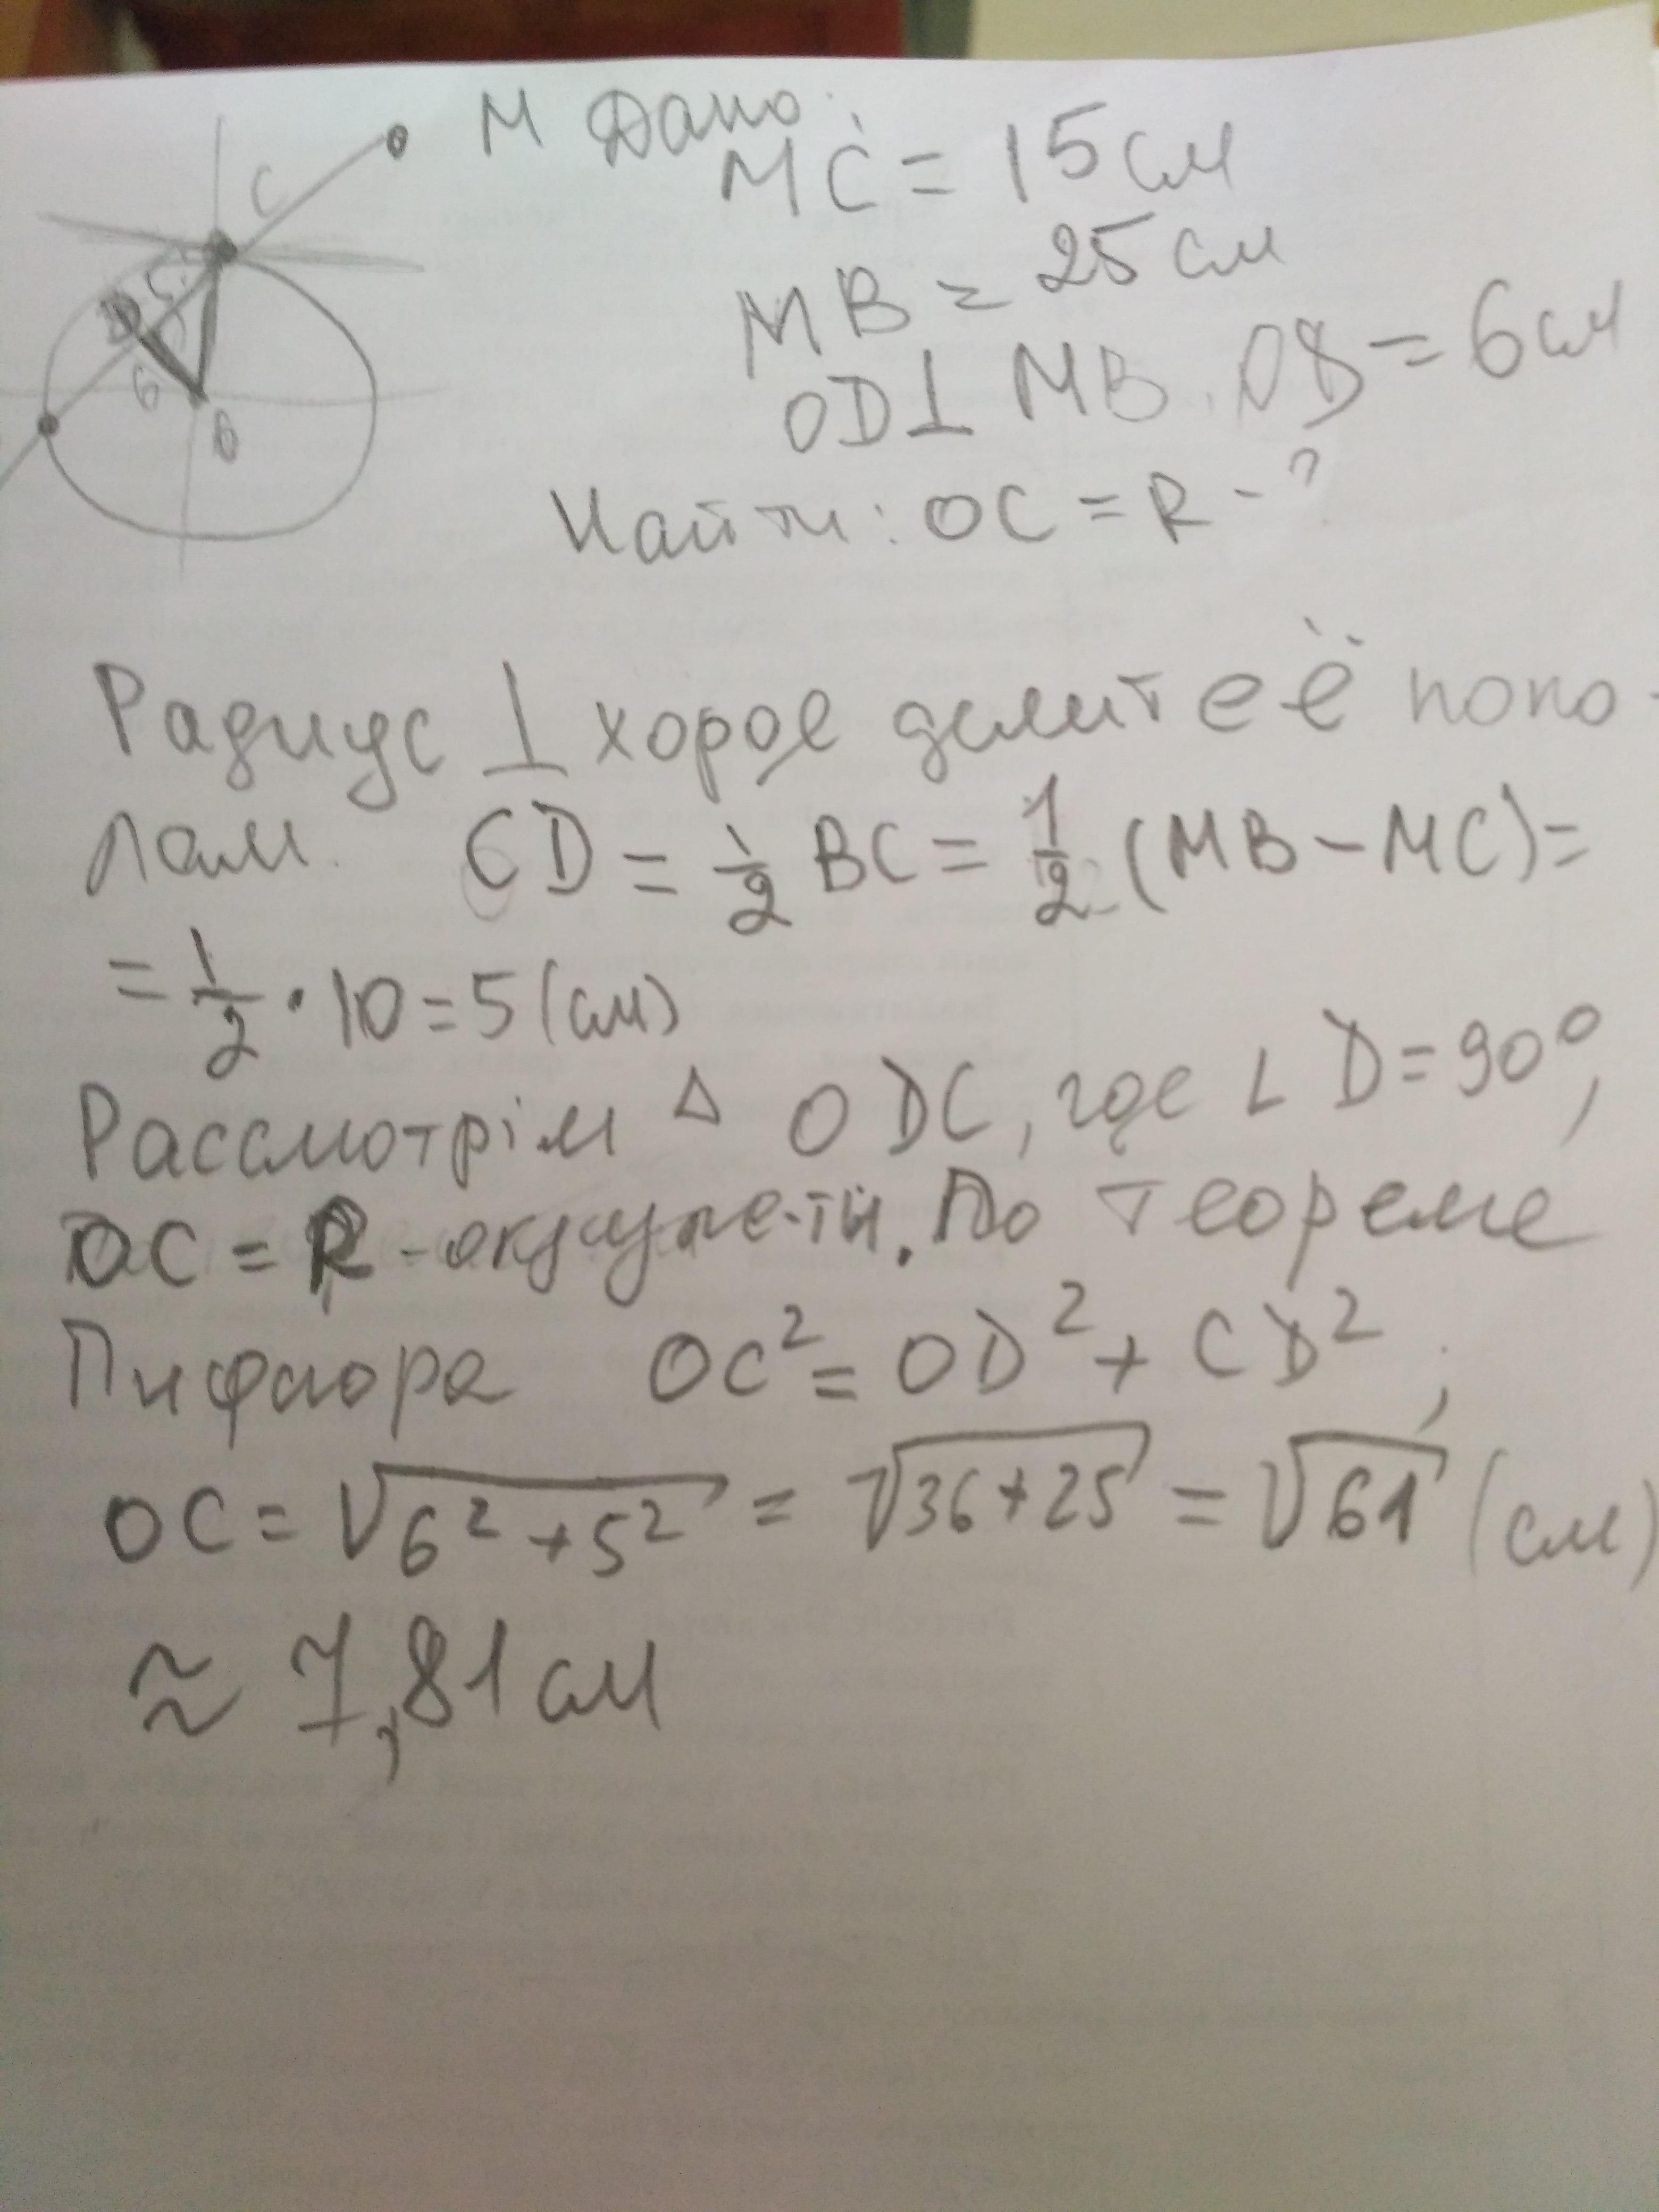 M Дано:
C
MC = 15 см
MB = 25 см
D 5
6
O
OD ⊥ MB. OD = 6 см
Найти: OC = R - ?
Радиус ⊥ хорде делит её попо-
лам. CD = 1/2 BC = 1/2 (MB - MC) =
= 1/2 · 10 = 5 (см)
Рассмотрім △ ODC, где ∠ D = 90°,
OC = R - окружн-ти. По теореме
Пифагора OC² = OD² + CD²;
OC = √6² + 5² = √36 + 25 = √61 (см)
≈ 7,81 см